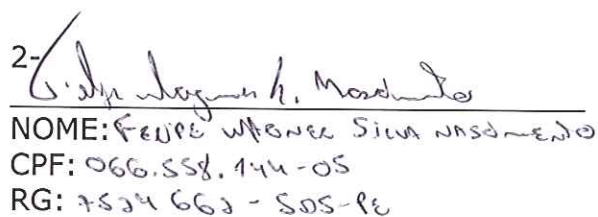 2-
NOME: FELIPE WAGNER SILVA NASCIMENTO
CPF: 066.558.144-05
RG: 7524662 - SDS-PE